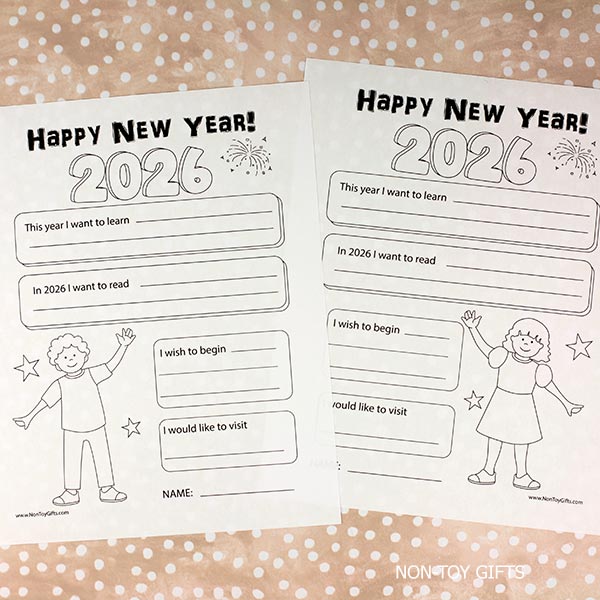 Happy New Year!
2026
This year I want to learn
In 2026 I want to read
I wish to begin
I would like to visit
NAME:
www.NonToyGifts.com
Happy New Year!
2026
This year I want to learn
In 2026 I want to read
I wish to begin
would like to visit
NAME:
www.NonToyGifts.com
NON-TOY GIFTS